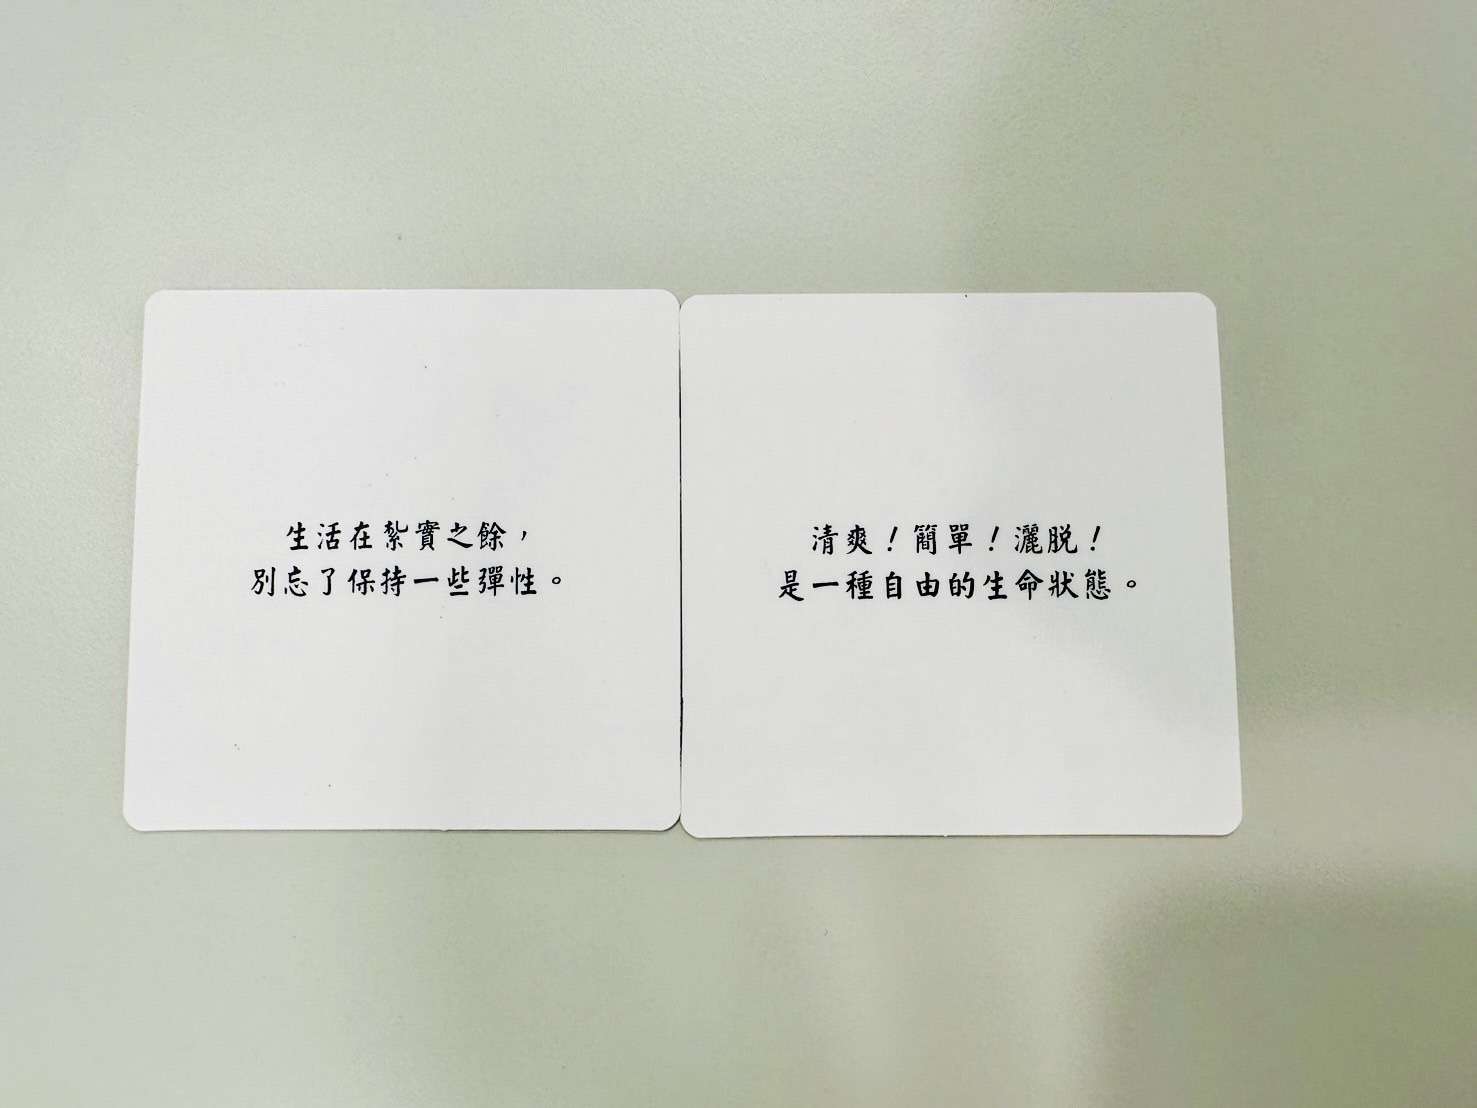 生活在紮實之餘，
別忘了保持一些彈性。
清爽！簡單！灑脫！
是一種自由的生命狀態。